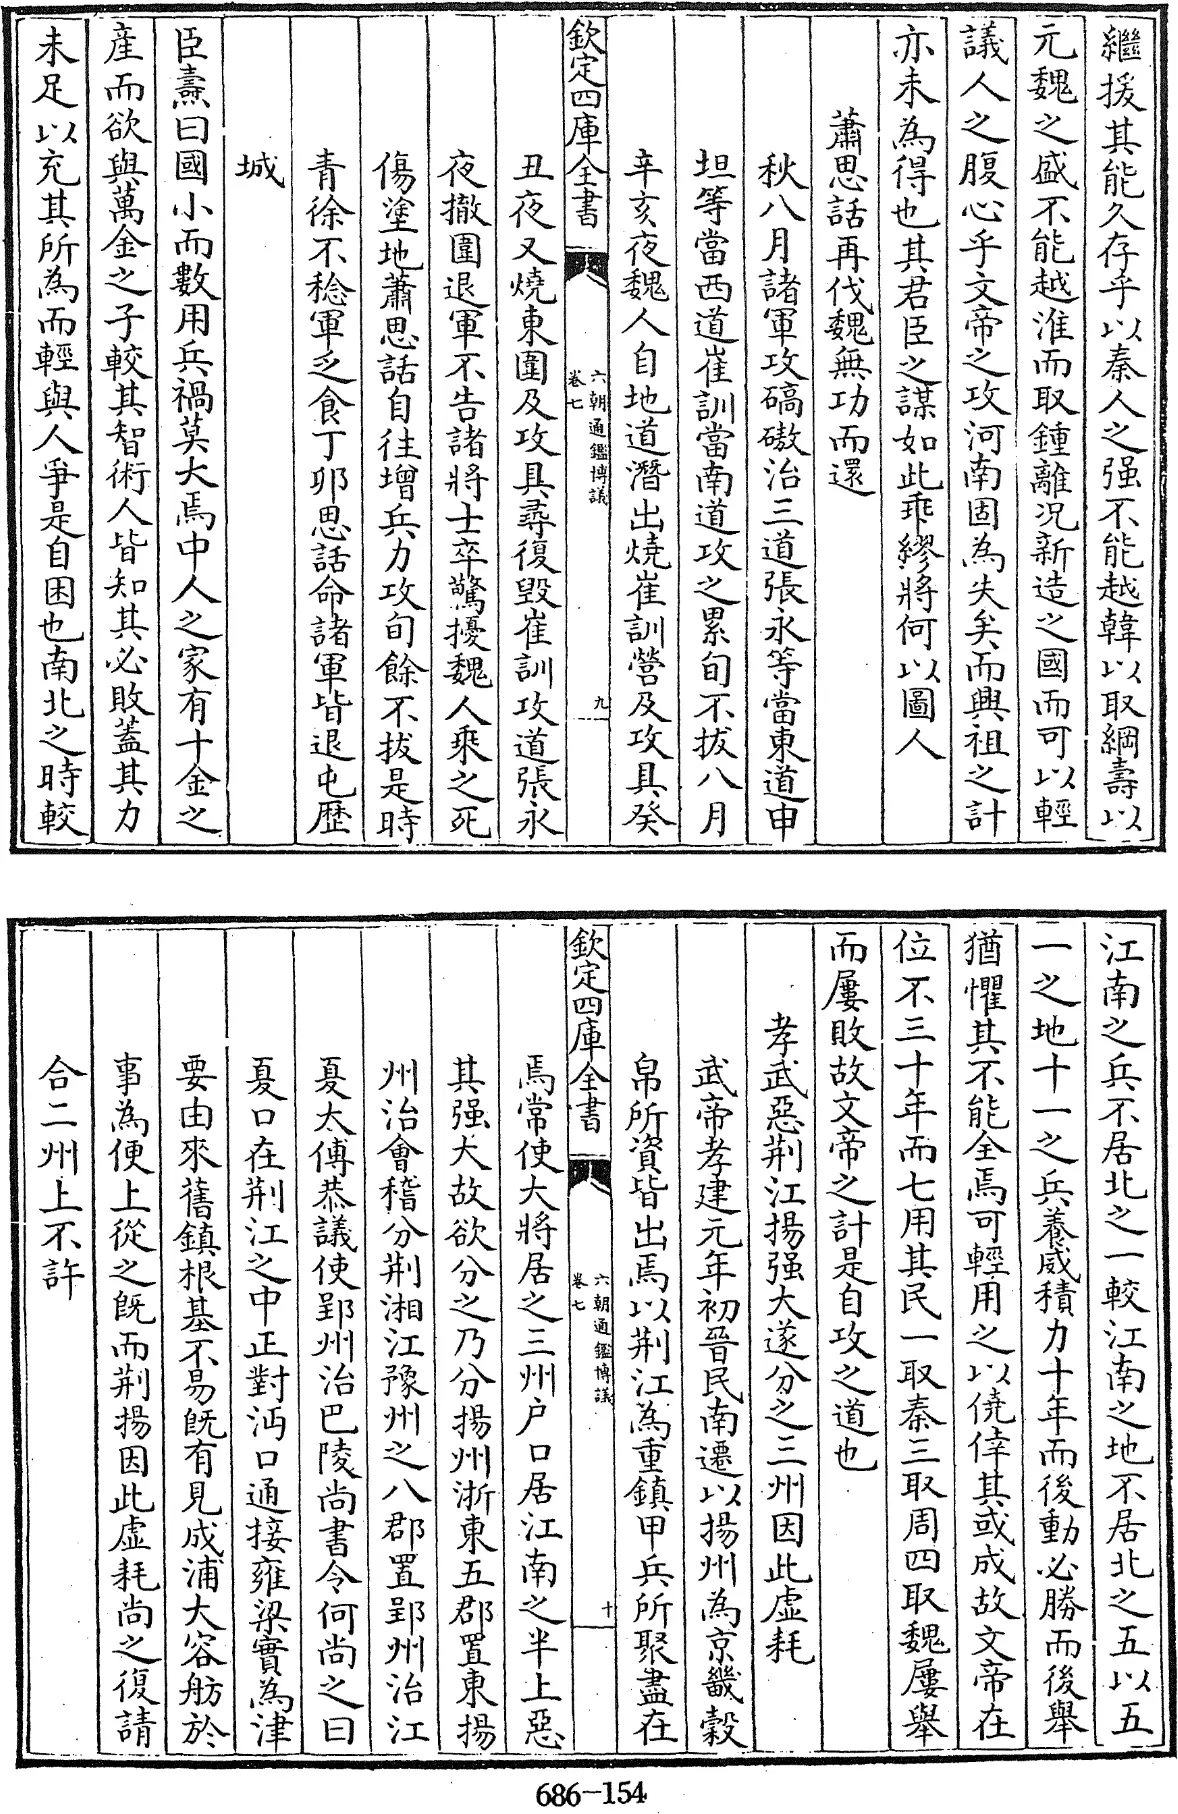 繼援其能久存乎以秦人之强不能越韓以取綱壽以
元魏之盛不能越淮而取鍾離况新造之國而可以輕
議人之腹心乎文帝之攻河南固為失矣而興祖之計
亦未為得也其君臣之謀如此乖繆將何以圖人
蕭思話再伐魏無功而還
秋八月諸軍攻碻磝治三道張永等當東道申
坦等當西道崔訓當南道攻之累旬不拔八月
辛亥夜魏人自地道潛出燒崔訓營及攻具癸
欽定四庫全書
六朝通鑑博議
卷七
九
丑夜又燒東圍及攻具尋復毀崔訓攻道張永
夜撤圍退軍不告諸將士卒驚擾魏人乘之死
傷塗地蕭思話自往增兵力攻旬餘不拔是時
青徐不稔軍乏食丁卯思話命諸軍皆退屯歷
城
臣燾曰國小而數用兵禍莫大焉中人之家有十金之
産而欲與萬金之子較其智術人皆知其必敗蓋其力
未足以充其所為而輕與人爭是自困也南北之時較
江南之兵不居北之一較江南之地不居北之五以五
一之地十一之兵養威積力十年而後動必勝而後舉
猶懼其不能全焉可輕用之以僥倖其或成故文帝在
位不三十年而七用其民一取秦三取周四取魏屢舉
而屢敗故文帝之計是自攻之道也
孝武惡荆江揚强大遂分之三州因此虚耗
武帝孝建元年初晉民南遷以揚州為京畿穀
帛所資皆出焉以荆江為重鎮甲兵所聚盡在
欽定四庫全書
六朝通鑑博議
卷七
十
焉常使大將居之三州户口居江南之半上惡
其强大故欲分之乃分揚州浙東五郡置東揚
州治會稽分荆湘江豫州之八郡置郢州治江
夏太傅恭議使郢州治巴陵尚書令何尚之曰
夏口在荆江之中正對沔口通接雍梁實為津
要由來舊鎮根基不易既有見成浦大容舫於
事為便上從之既而荆揚因此虚耗尚之復請
合二州上不許
686-154